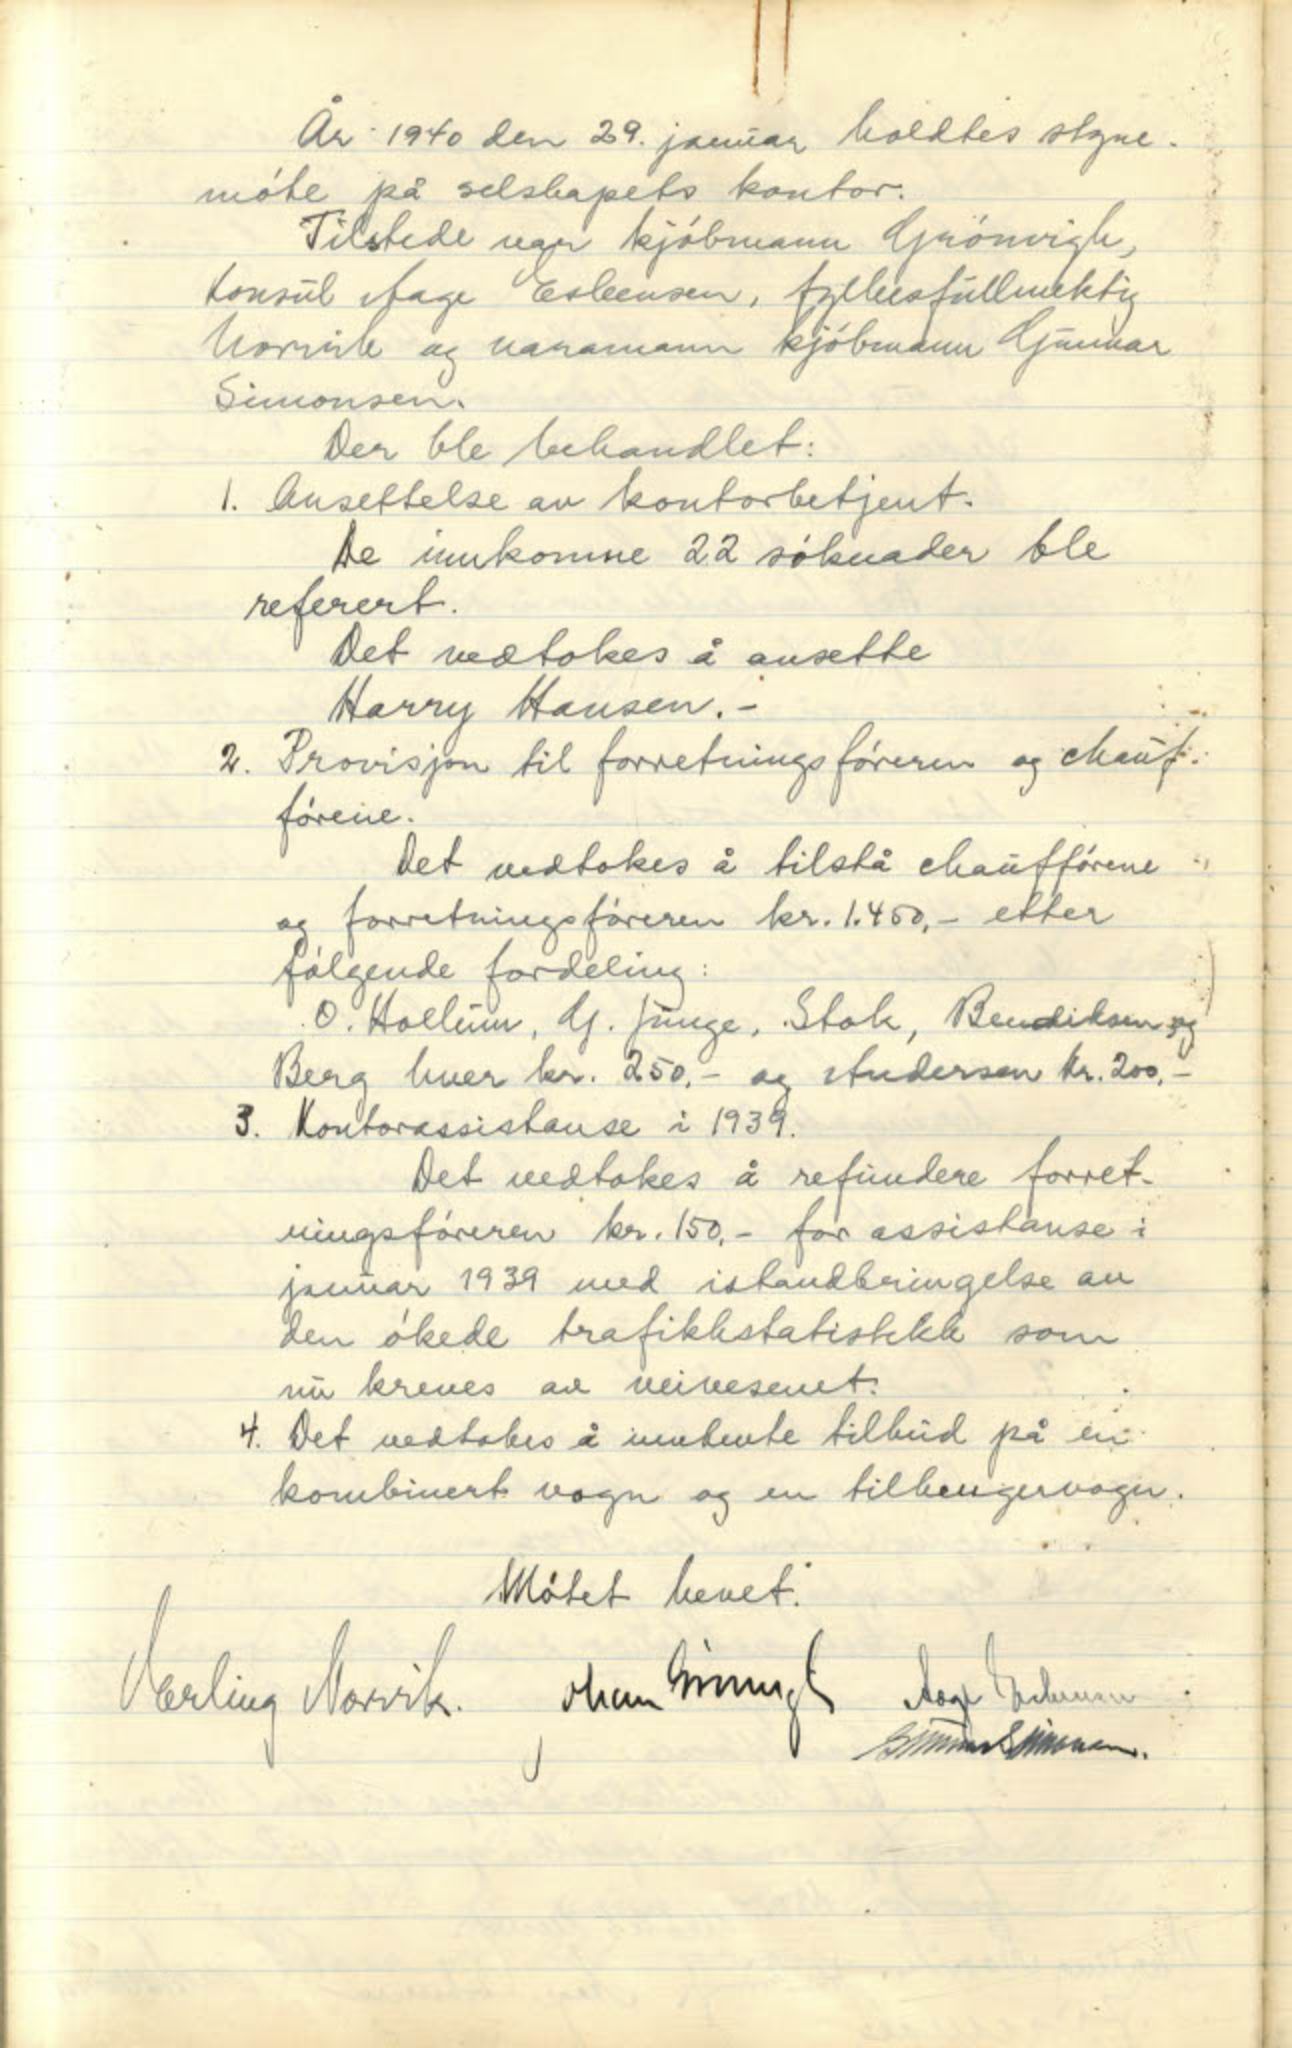 År 1940 den 29. januar holdtes styre-
møte på selskapets kontor.
Tilstede var kjøbmann Grönvigh,
konsul Aage Esbensen, fylkesfullmektig
Norvik og varamann kjøbmann Gunnar
Simonsen.
Der ble behandlet:
1. Ansettelse av kontorbetjent.
De innkomne 22 söknader ble
referert.
Det vedtokes å ansette
Harry Hansen.-
2. Provisjon til forretningsföreren og chauf-
förene.
Det vedtokes å tilstå chaufförene
og forretningsföreren kr. 1.450,- etter
fölgende fordeling:
O. Hollum, G. Junge, Stok, Bendiksen og
Berg hver kr. 250,- og Andersen kr. 200,-
3. Kontorassistanse i 1939.
Det vedtokes å refundere forret-
ningsföreren kr. 150,- for assistanse i
januar 1939 med istandbringelse av
den ökede trafikkstatistikk som
nu kreves av veivesenet.
4. Det vedtokes å innhente tilbud på en
kombinert vogn og en tilhengervogn.
Mötet hevet.
Aerling Norvik. Johan Grönvigh Aage Esbensen
Gunnar Simonsen.